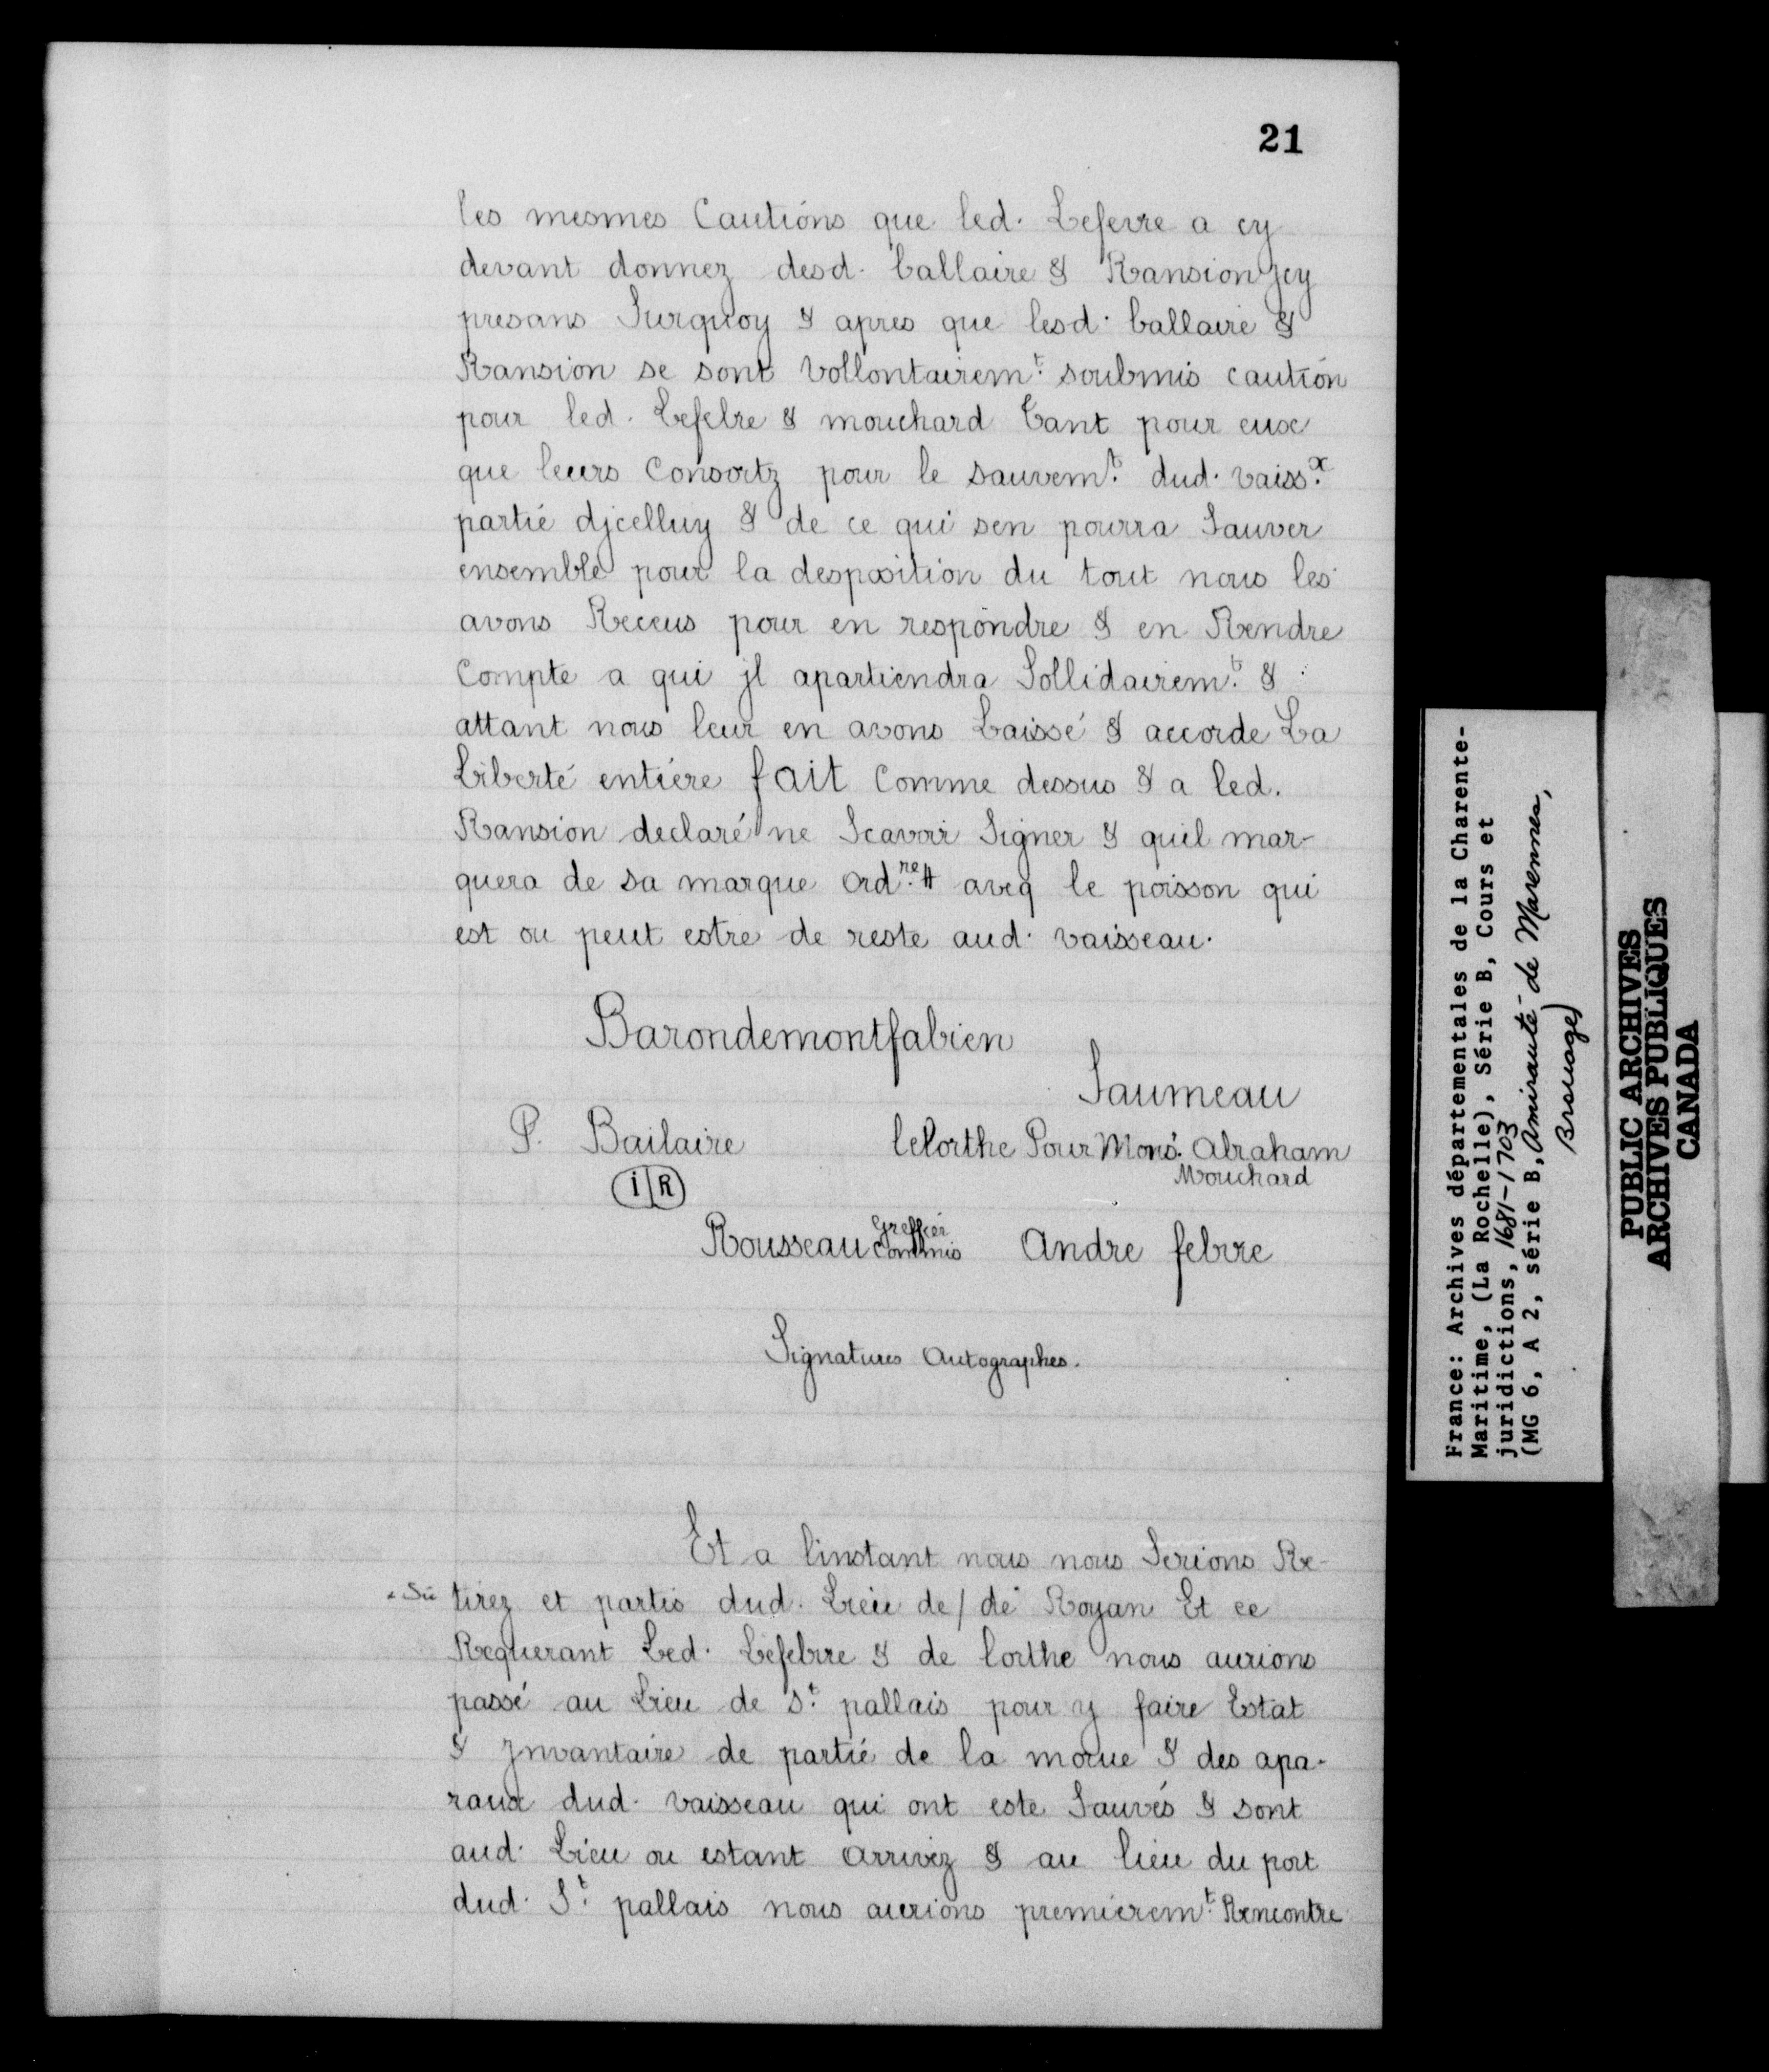 21
les mesmes Cautions que led. Lefevre a cy
devant donnez desd. ballaire & Ransion jcy
presans Surquoy & apres que lesd. ballaire &
Ransion se sont vollontairemt. soubmis caution
pour led. Lefebre & mouchard Tant pour eux
que leurs Consortz pour le sauvemt. dud. vaissx.
partie djcelluy & de ce qui sen pourra Sauver
ensemble pour la desposition du tout nous les
avons Receus pour en respondre & en Rendre
Compte a qui jl apartiendra Sollidairemt. &
attant nous leur en avons Laissé & accorde La
Liberté entiére fait Comme dessus & a led.
Ransion declaré ne Scavoir Signer & quil mar-
quera de sa marque ordre. # aveq le poisson qui
est ou peut estre de reste aud. vaisseau.
Barondemontfabien
Saumeau
P. Bailaire
lelorthe Pour Mons. Abraham
Mouchard
i R
Rousseau Greffier Commis
Andre febvre
Signatures Autographes.
Et a linstant nous nous Serions Re-
tirez et partis dud. Lieu de / de Royan Et ce
Requerant Led. Lefebvre & de lorthe nous aurions
passé au Lieu de St. pallais pour y faire Estat
& Jnvantaire de partie de la morue & des apa-
raux dud. vaisseau qui ont este Sauvés & sont
aud. Lieu ou estant Arrivez & au lieu du port
dud. St. pallais nous aurions premieremt. Rencontre
France: Archives départementales de la Charente-
Maritime, (La Rochelle), Série B, Cours et
juridictions, 1681-1703
(MG 6, A 2, série B, Amirauté de Marennes,
Brouage)
PUBLIC ARCHIVES
ARCHIVES PUBLIQUES
CANADA